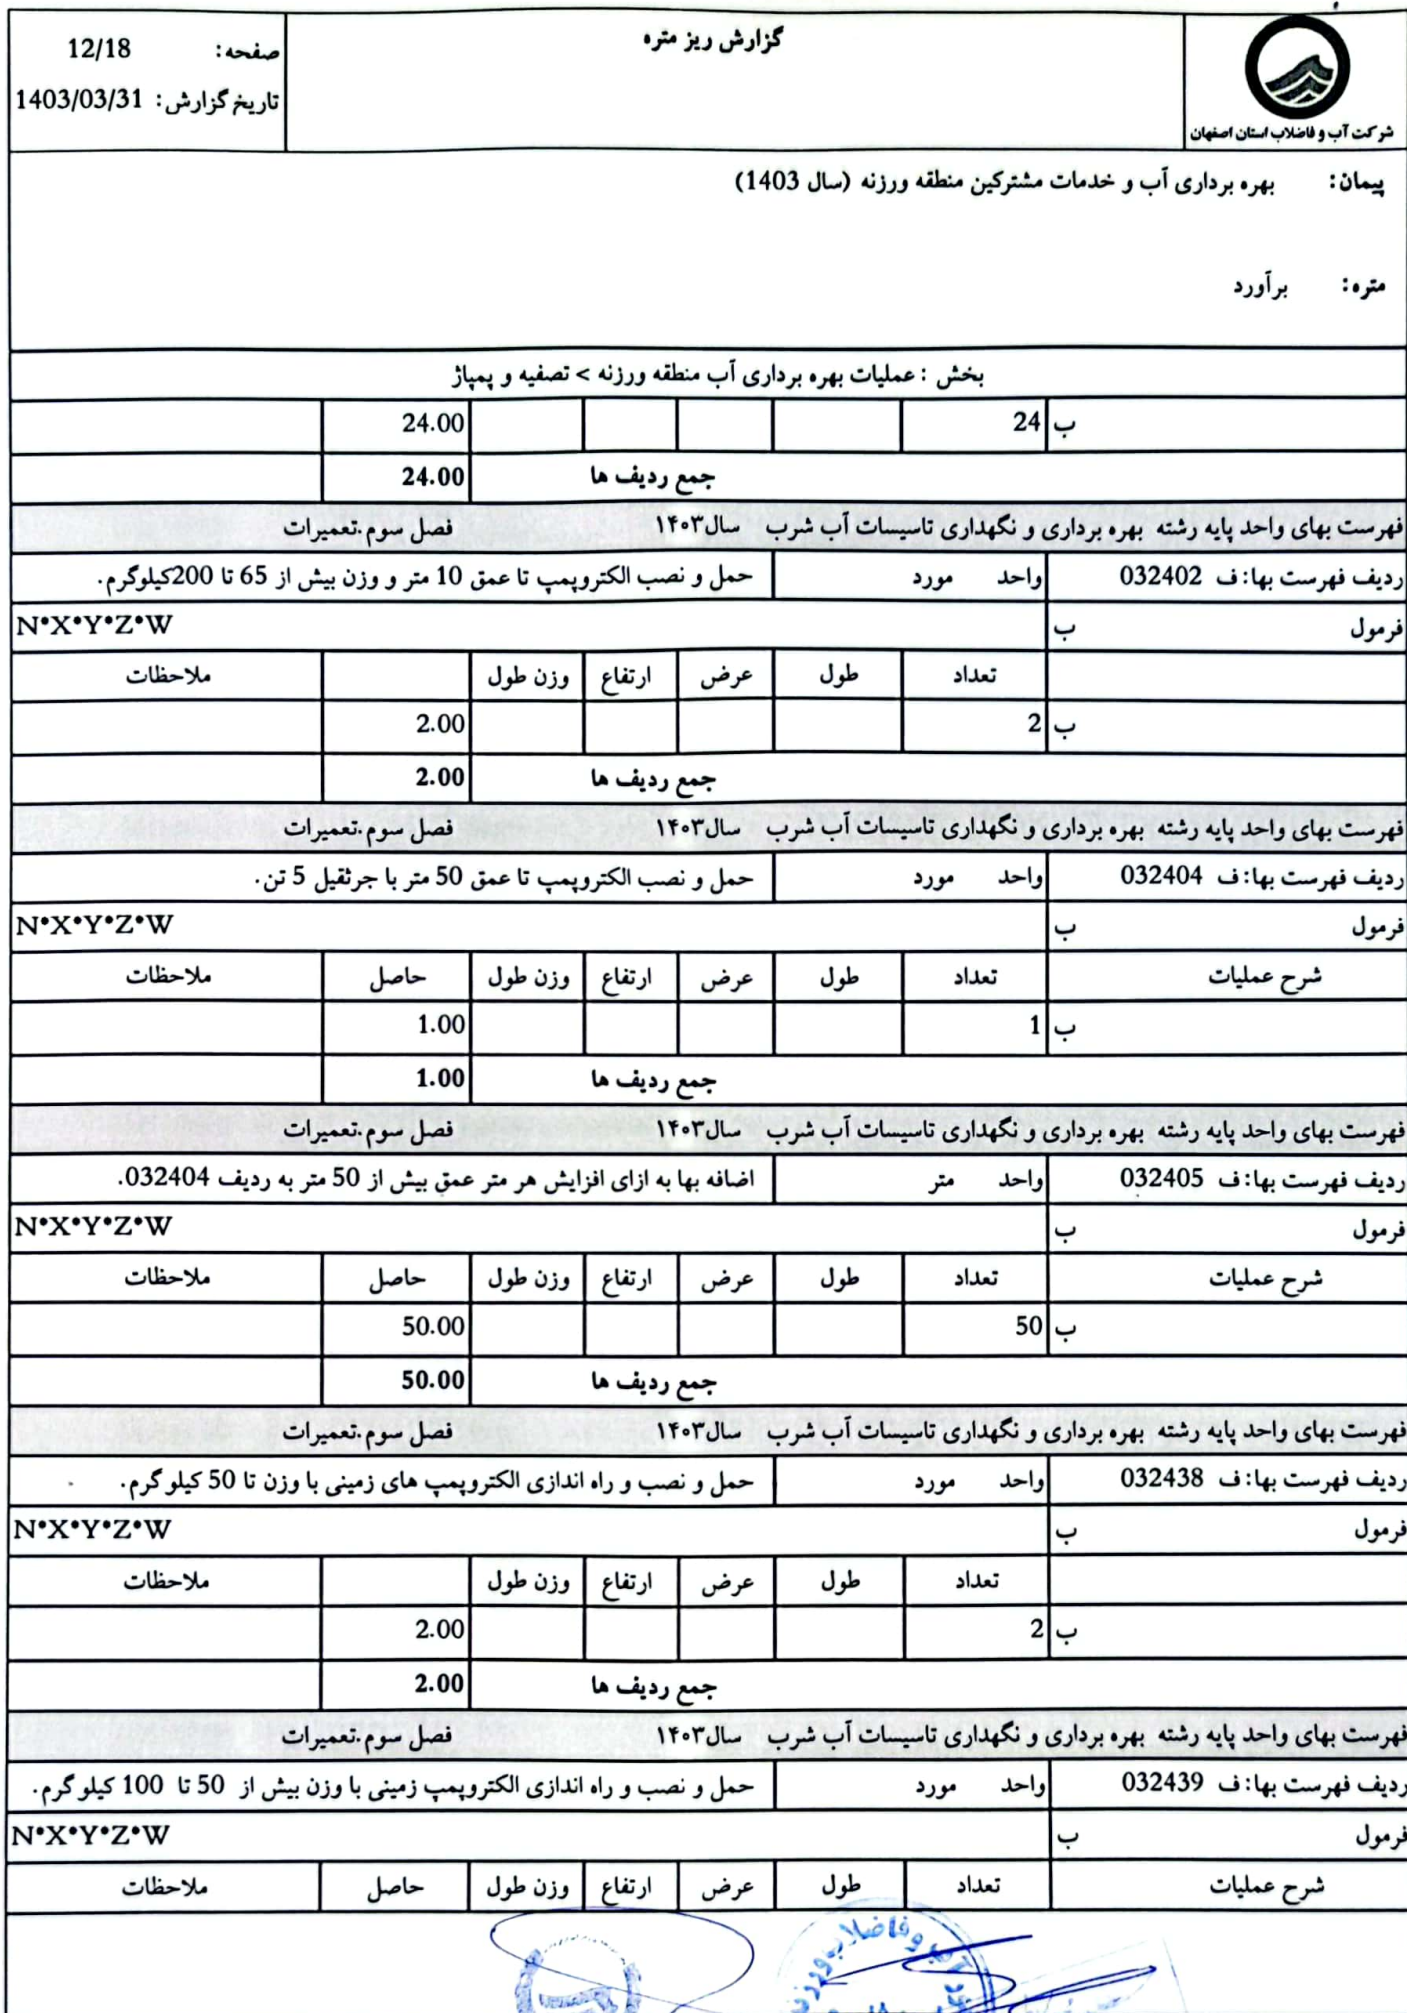 شرکت آب و فاضلاب استان اصفهان
گزارش ریز متره
صفحه: 12/18
تاریخ گزارش: 1403/03/31
پیمان: بهره برداری آب و خدمات مشترکین منطقه ورزنه (سال 1403)
متره: برآورد
بخش : عملیات بهره برداری آب منطقه ورزنه > تصفیه و پمپاژ
ب 24 24.00
جمع ردیف ها 24.00
فهرست بهای واحد پایه رشته بهره برداری و نگهداری تاسیسات آب شرب سال۱۴۰۳ فصل سوم.تعمیرات
ردیف فهرست بها: ف 032402 واحد مورد حمل و نصب الکتروپمپ تا عمق 10 متر و وزن بیش از 65 تا 200کیلوگرم.
فرمول ب N*X*Y*Z*W
تعداد طول عرض ارتفاع وزن طول ملاحظات
ب 2 2.00
جمع ردیف ها 2.00
فهرست بهای واحد پایه رشته بهره برداری و نگهداری تاسیسات آب شرب سال۱۴۰۳ فصل سوم.تعمیرات
ردیف فهرست بها: ف 032404 واحد مورد حمل و نصب الکتروپمپ تا عمق 50 متر با جرثقیل 5 تن.
فرمول ب N*X*Y*Z*W
شرح عملیات تعداد طول عرض ارتفاع وزن طول حاصل ملاحظات
ب 1 1.00
جمع ردیف ها 1.00
فهرست بهای واحد پایه رشته بهره برداری و نگهداری تاسیسات آب شرب سال۱۴۰۳ فصل سوم.تعمیرات
ردیف فهرست بها: ف 032405 واحد متر اضافه بها به ازای افزایش هر متر عمق بیش از 50 متر به ردیف 032404.
فرمول ب N*X*Y*Z*W
شرح عملیات تعداد طول عرض ارتفاع وزن طول حاصل ملاحظات
ب 50 50.00
جمع ردیف ها 50.00
فهرست بهای واحد پایه رشته بهره برداری و نگهداری تاسیسات آب شرب سال۱۴۰۳ فصل سوم.تعمیرات
ردیف فهرست بها: ف 032438 واحد مورد حمل و نصب و راه اندازی الکتروپمپ های زمینی با وزن تا 50 کیلوگرم.
فرمول ب N*X*Y*Z*W
تعداد طول عرض ارتفاع وزن طول ملاحظات
ب 2 2.00
جمع ردیف ها 2.00
فهرست بهای واحد پایه رشته بهره برداری و نگهداری تاسیسات آب شرب سال۱۴۰۳ فصل سوم.تعمیرات
ردیف فهرست بها: ف 032439 واحد مورد حمل و نصب و راه اندازی الکتروپمپ زمینی با وزن بیش از 50 تا 100 کیلوگرم.
فرمول ب N*X*Y*Z*W
شرح عملیات تعداد طول عرض ارتفاع وزن طول حاصل ملاحظات
آب و فاضلاب ورزنه